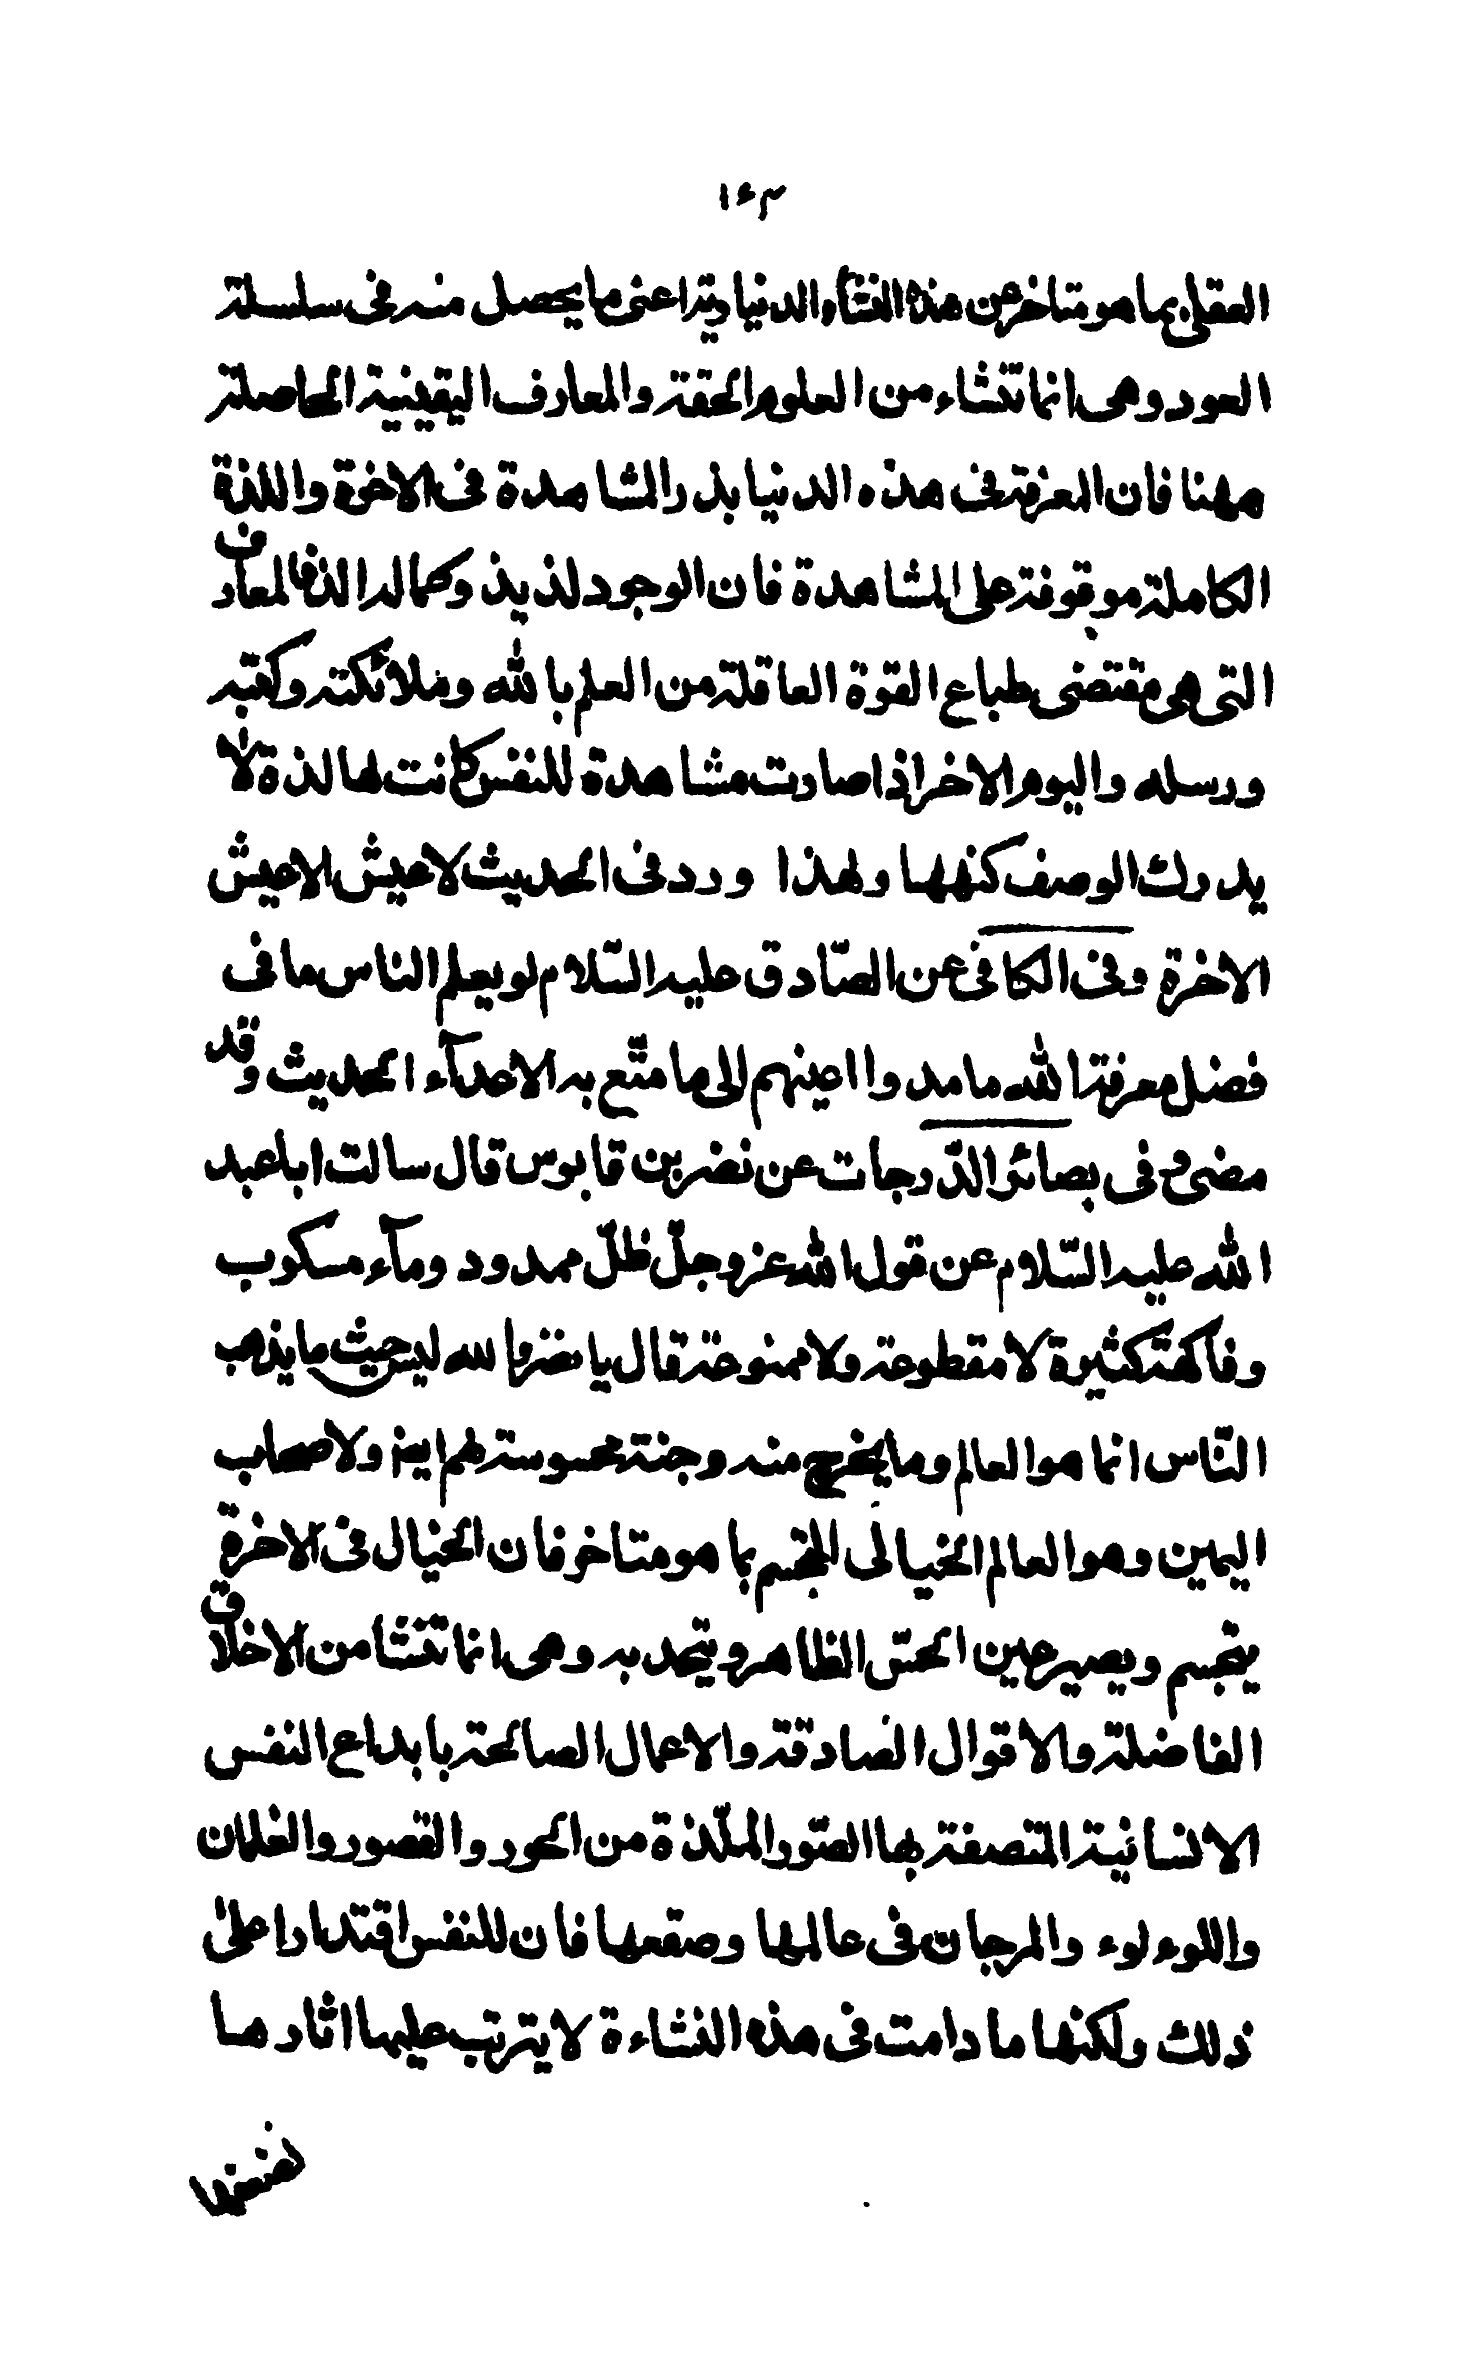 ١٤٣
العقلى بما هو متاخر عن هذه النشأة الدنياوية اعنى ما يحصل منه فى سلسلة
العود وهى انما تنشاء من العلوم الحقة والمعارف اليقينية الحاصلة
ههنا فان المعرفة فى هذه الدنيا بذر المشاهدة فى الاخرة واللذة
الكاملة موقوفة على المشاهدة فان الوجود لذيذ وكماله الذ فالمعارف
التى هى مقتضى طباع القوة العاقلة من العلم بالله وملائكته وكتبه
ورسله واليوم الاخر اذا صارت مشاهدة للنفس كانت لها لذة لا
يدرك الوصف كنهها ولهذا ورد فى الحديث لاعيش الاعيش
الاخرة وفى الكافى عن الصّادق عليه السّلام لو يعلم الناس ما فى
فضل معرفة الله ما مدوا اعينهم الى ما متّع به الاعدآء الحديث وقد
مضى وفى بصائر الدّرجات عن نضر بن قابوس قال سالت ابا عبد
الله عليه السّلام عن قول الله عز وجلّ ظلّ ممدود ومآء مسكوب
وفاكهة كثيرة لا مقطوعة ولا ممنوعة قال يا نضر والله ليس حيث ما يذهب
النّاس انما هو العالم وما يخرج منه وجنة محسوسة لهم ايضا ولاصحاب
اليمين وهو العالم الخيالى المجسم بما هو متاخر فان الخيال فى الاخرة
يتجسم ويصير عين الحسّ الظاهر ويتحد به وهى انما تنشا من الاخلاق
الفاضلة والاقوال الصادقة والاعمال الصالحة بابداع النفس
الانسانية المتصفة بها الصّور الملّذة من الحور والقصور والغلمان
واللوء لوء والمرجان فى عالمها وصقعها فان للنفس اقتدارا على
ذلك ولكنها ما دامت فى هذه النشاءة لا يترتب عليها اثارها